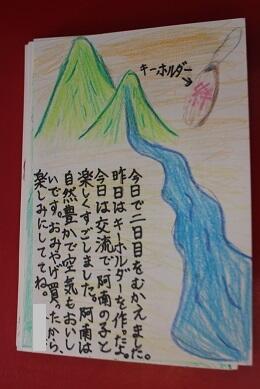 キーホルダー
絆
今日で二日目をむかえました。
昨日はキーホルダーを作ったよ。
今日は交流で、阿南の子と
楽しくすごしました。阿南は
自然豊かで空気もおいし
いです。おみやげ買ったから、
楽しみにしててね。